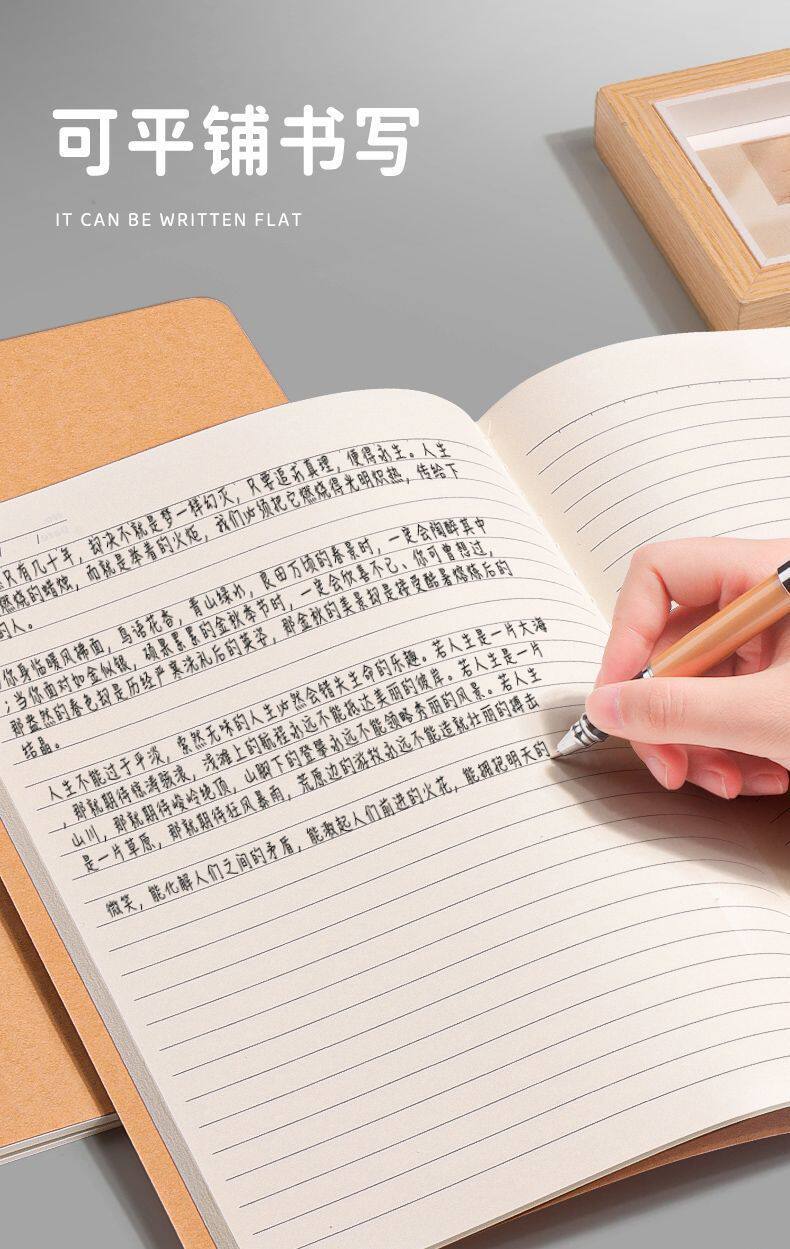 可平铺书写
IT CAN BE WRITTEN FLAT
只有几十年，却决不就是梦一样幻灭，只要追求真理，便得永生。人生
燃烧的蜡烛，而就是举着的火炬，我们必须把它燃烧得光明炽热，传给下
的人。
你身临暖风拂面，鸟语花香，青山绿水，良田万顷的春景时，一定会陶醉其中
；当你面对如金似银，硕果累累的金秋季节时，一定会欣喜不已、你可曾想过，
那盎然的春色却是历经严寒洗礼后的英姿，那金秋的美景却是接受酷暑熔炼后的
结晶。
人生不能过于平淡，索然无味的人生必然会错失生命的乐趣。若人生是一片大海
，那就期待惊涛骇浪，浅滩上的航程永远不能抵达美丽的彼岸。若人生是一片
山川，那就期待峻岭绝顶，山脚下的登攀永远不能领略秀丽的风景。若人生
是一片草原，那就期待狂风暴雨，荒原边的游牧永远不能造就壮丽的搏击
微笑，能化解人们之间的矛盾，能激起人们前进的火花，能拥抱明天的